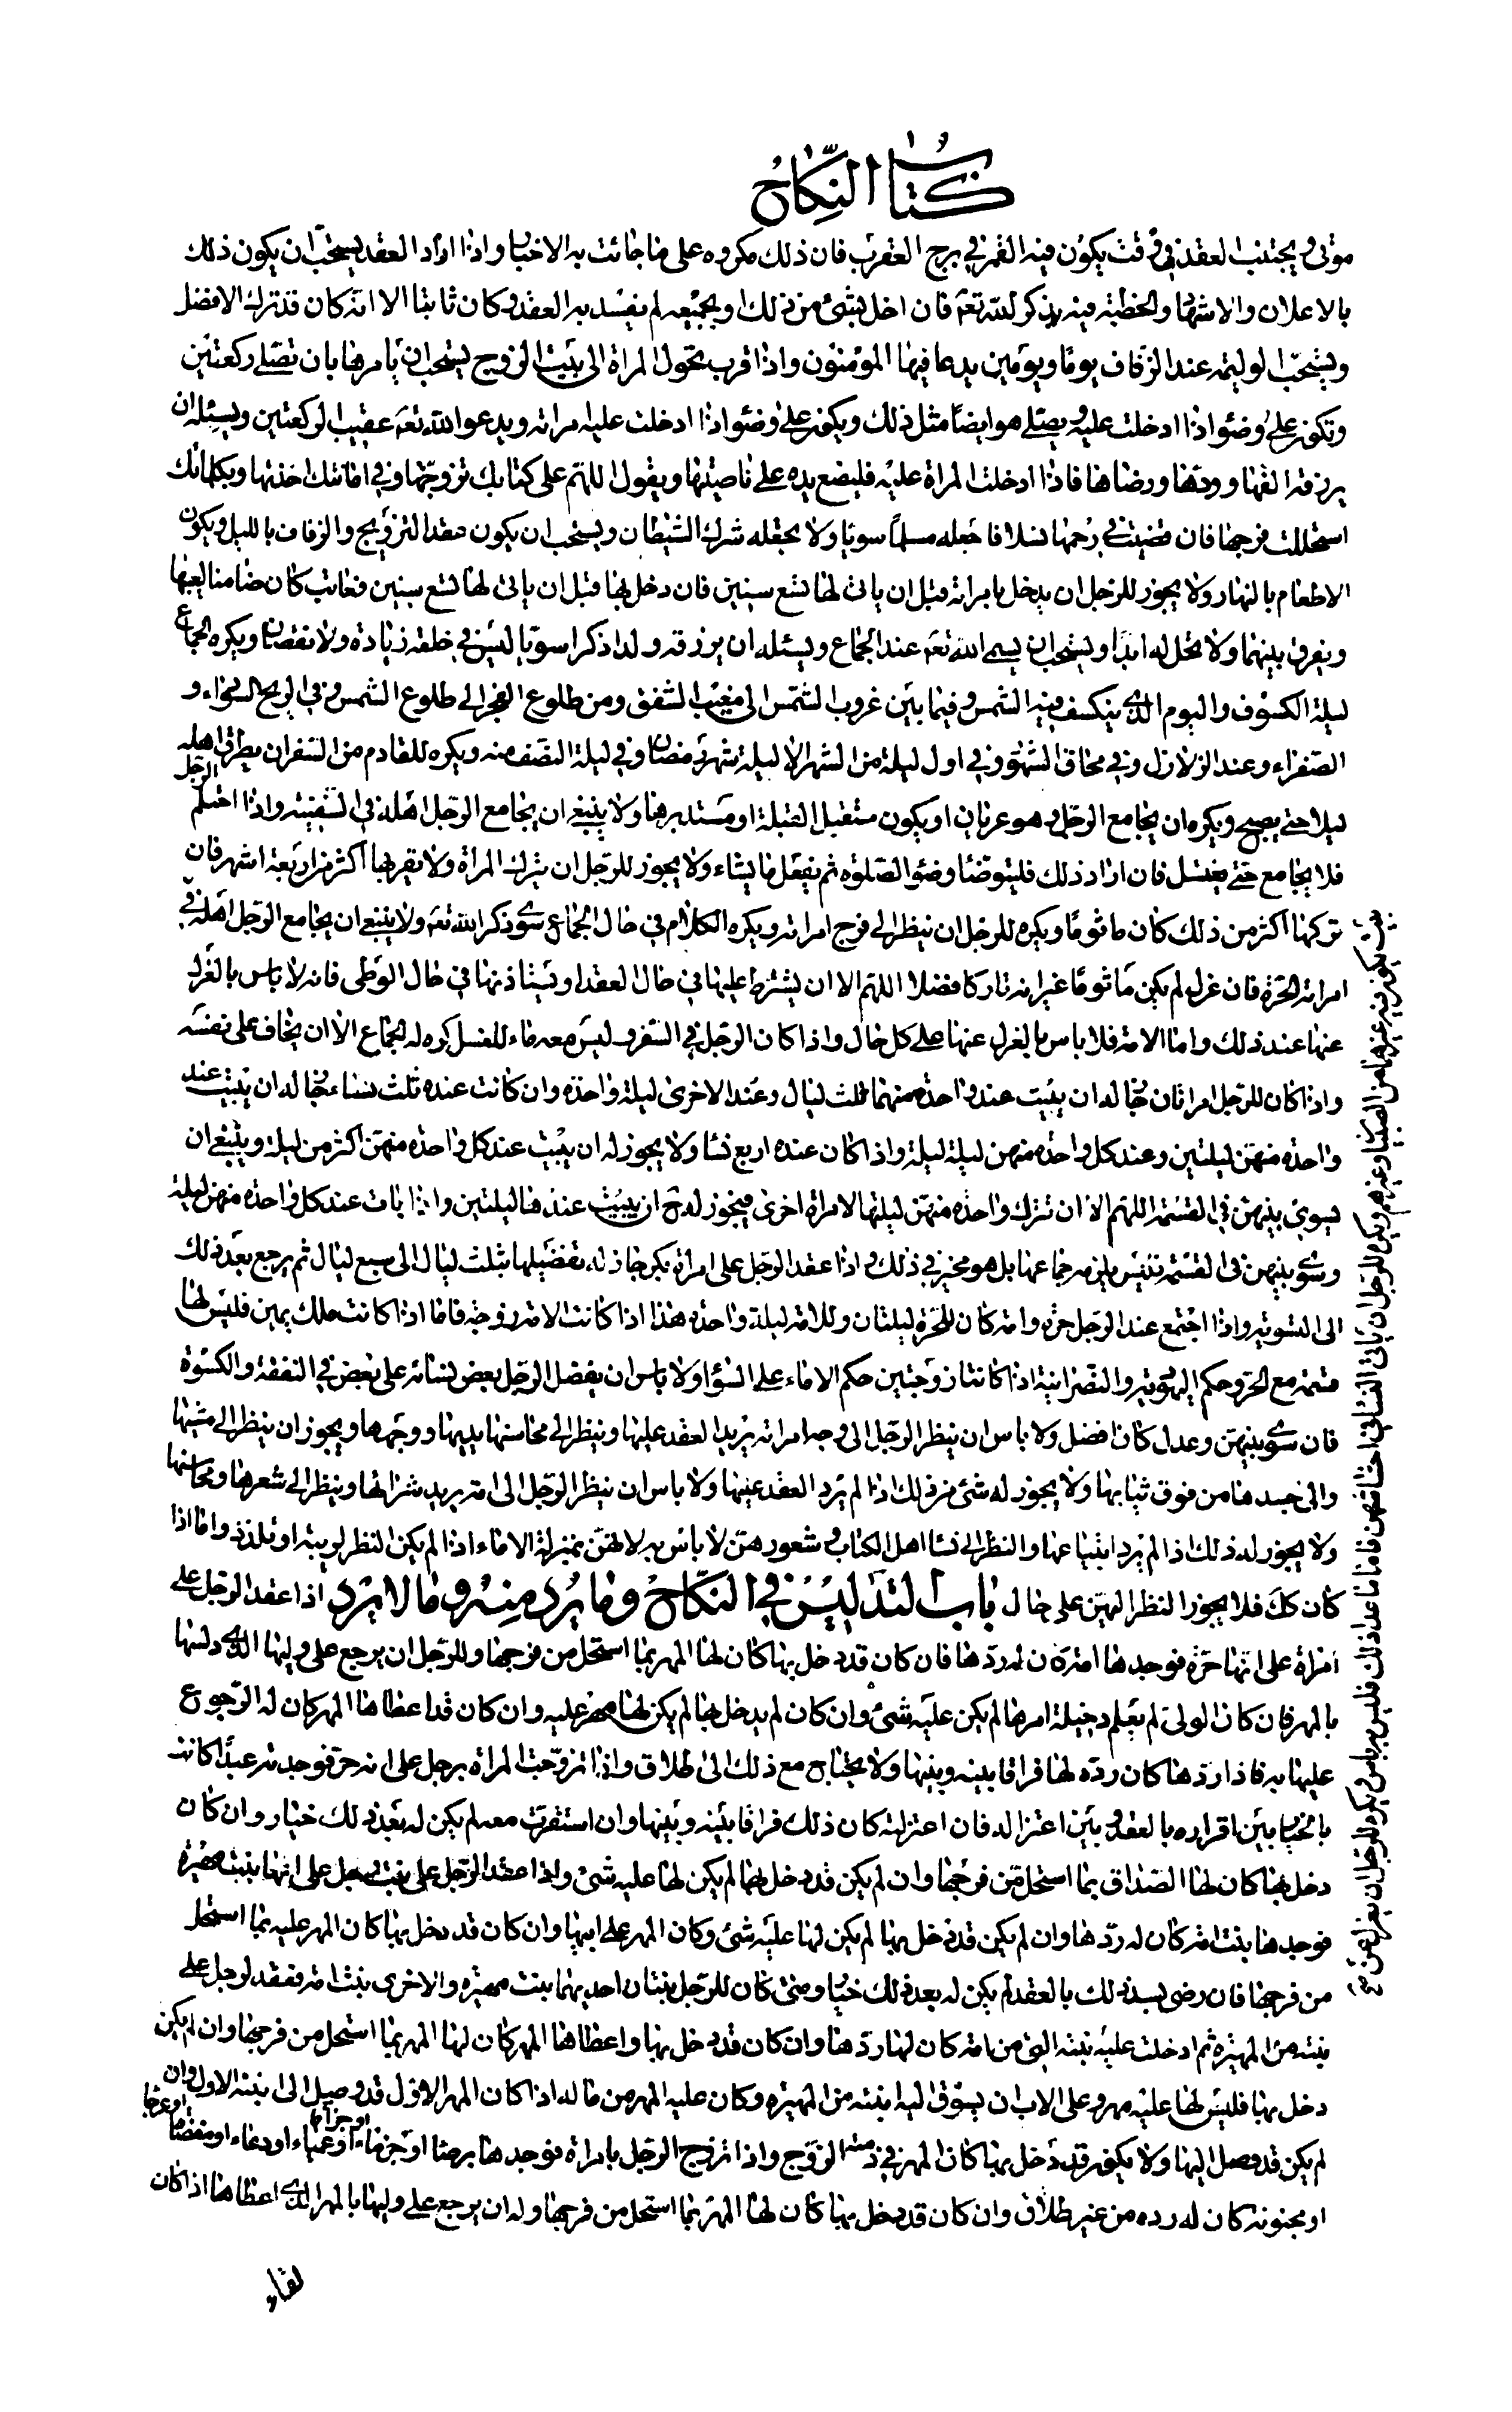 كتاب النكاح
موتى ويجتنب العقد في وقت يكون فيه القمر في برج العقرب فان ذلك مكروه على ما جائت به الاخبار واذا اراد العقد يستحب ان يكون ذلك
بالاعلان والاشهاد والخطبة فيه بذكر الله تعه فان اخل بشئ من ذلك او بجميعه لم يفسد به العقد وكان ثابتا الا انه كان قد ترك الافضل
ويستحب الوليمة عند الزفاف يوما ويومين يدعا فيها المؤمنون واذا قرب تحول المراة الى بيت الزوج يستحب ان يامرها بان تصلى ركعتين
وتكون على وضوء اذا ادخلت عليه ويصلى هو ايضا مثل ذلك ويكون على وضوء اذا ادخلت عليه امراته ويدعو الله تعه عقيب الركعتين ويسئله ان
يرزقه الفها وودها ورضاها فاذا ادخلت المراة عليه فليضع يده على ناصيتها ويقول اللهم على كتابك تزوجتها وفي امانتك اخذتها وبكلماتك
استحللت فرجها فان قضيت في رحمها نسلا فاجعله مسلما سويا ولا تجعله شرك الشيطان ويستحب ان يكون عقد التزويج والزفاف بالليل ويكون
الاطعام بالنهار ولا يجوز للرجل ان يدخل بامراته قبل ان ياتى لها تسع سنين فان دخل بها قبل ان ياتى لها تسع سنين فعابت كان ضامنا لعيبها
ويفرق بينهما ولا تحل له ابدا ويستحب ان يسمى الله تعه عند الجماع ويسئله ان يرزقه ولدا ذكرا سويا ليس في خلقه زيادة ولا نقصان ويكره الجماع
ليلة الكسوف واليوم الذي ينكسف فيه الشمس وفيما بين غروب الشمس الى مغيب الشفق ومن طلوع الفجر الى طلوع الشمس وفي الريح السوداء و
الصفراء وعند الزلازل وفي محاق الشهور وفي اول ليلة من الشهر الا ليلة شهر رمضان وفي ليلة النصف منه ويكره للقادم من السفر ان يطرق اهله
ليلا حتى يصبح ويكره ان يجامع الرجل وهو عريان او يكون مستقبل القبلة او مستدبرها ولا ينبغى ان يجامع الرجل اهله في السفينة واذا احتلم الرجل
فلا يجامع حتى يغتسل فان اراد ذلك فليتوضا وضوء الصلوة ثم يفعل ما يشاء ولا يجوز للرجل ان يترك المراة ولا يقربها اكثر من اربعة اشهر فان
تركها اكثر من ذلك كان ماثوما ويكره للرجل ان ينظر الى فرج امراته ويكره الكلام في حال الجماع سوى ذكر الله تعه ولا ينبغى ان يجامع الرجل اهله في
بيت يكون فيه غيرهما من الصبيان وغيرهم ويكره للرجل ان ياتى النساء في احشاشهن فاما ما عدا ذلك فليس به باس ويكره للرجل ان يعزل عن
امراته الحرة فان عزل لم يكن ماثوما غير انه تاركا فضلا اللهم الا ان يشترط عليها في حال العقد او يستاذنها في حال الوطى فانه لا باس بالعزل
عنها عند ذلك واما الامة فلا باس بالعزل عنها على كل حال واذا كان الرجل في السفر وليس معه ماء للغسل كره له الجماع الا ان يخاف على نفسه
واذا كان للرجل امراتان جاز له ان يبيت عند واحدة منهما ثلث ليال وعند الاخرى ليلة واحدة وان كانت عنده ثلث نساء جاز له ان يبيت عند
واحدة منهن ليلتين وعند كل واحدة منهن ليلة ليلة واذا كان عنده اربع نساء ولا يجوز له ان يبيت عند كل واحدة منهن اكثر من ليلة وينبغى ان
يسوى بينهن في القسمة اللهم الا ان تترك واحدة منهن ليلتها لامراة اخرى فيجوز له ح ان يبيت عندها ليلتين واذا بات عند كل واحدة منهن ليلة
وسوى بينهن في القسمة فليس يلزمه جماعها بل هو مخير في ذلك واذا عقد الرجل على امراة بكر جاز له تفضيلها بثلث ليال الى سبع ليال ثم يرجع بعد ذلك
الى التسوية واذا اجتمع عند الرجل حرة وامة كان للحرة ليلتان وللامة ليلة واحدة هذا اذا كانت الامة زوجة فاما اذا كانت ملك يمين فليس لها
قسمة مع الحرة وحكم اليهودية والنصرانية اذا كانتا زوجتين حكم الاماء على السواء ولا باس ان يفضل الرجل بعض نسائه على بعض في النفقة والكسوة
فان سوى بينهن وعدل كان افضل ولا باس ان ينظر الرجل الى وجه امراة يريد العقد عليها وينظر الى محاسنها يديها ووجهها ويجوز ان ينظر الى مشيها
والى جسدها من فوق ثيابها ولا يجوز له شئ من ذلك اذا لم يرد العقد عليها ولا باس ان ينظر الرجل الى امة يريد شرائها وينظر الى شعرها ومحاسنها
ولا يجوز له ذلك اذا لم يرد ابتياعها والنظر الى نساء اهل الكتاب وشعورهن لا باس به لانهن بمنزلة الاماء اذا لم يكن النظر لريبة او تلذذ واما اذا
كان كك فلا يجوز النظر اليهن على حال باب التدليس في النكاح وما يرد منه وما لا يرد اذا عقد الرجل على
امراة على انها حرة فوجدها امة كان له ردها فان كان قد دخل بها كان لها المهر بما استحل من فرجها وللرجل ان يرجع على وليها الذي دلسها
بالمهر فان كان الولى لم يعلم دخيلة امرها لم يكن عليه شئ وان كان لم يدخل بها لم يكن لها مهر عليه وان كان قد اعطاها المهر كان له الرجوع
عليها به فاذا ردها كان رده لها فراقا بينه وبينها ولا يحتاج مع ذلك الى طلاق واذا تزوجت المراة برجل على انه حر فوجدته عبدا كانت
بالخيار بين اقراره بالعقد وبين اعتزاله فان اعتزلته كان ذلك فراقا بينه وبينها وان استقرت معه لم يكن لها بعد ذلك خيار وان كان
دخل بها كان لها الصداق بما استحل من فرجها وان لم يكن قد دخل بها لم يكن لها عليه شئ واذا عقد الرجل على بنت رجل على انها بنت مهيرة
فوجدها بنت امة كان له ردها وان لم يكن قد دخل بها لم يكن لها عليه شئ وكان المهر على ابيها وان كان قد دخل بها كان المهر عليه بما استحل
من فرجها فان رضى بعد ذلك بالعقد لم يكن له بعد ذلك خيار ومتى كان للرجل بنتان احديهما بنت مهيرة والاخرى بنت امة فعقد لرجل على
بنته من المهيرة ثم ادخلت عليه بنته التي من امة كان له ردها وان كان قد دخل بها واعطاها المهر كان لها المهر بما استحل من فرجها وان لم يكن
دخل بها فليس لها عليه مهر وعلى الاب ان يسوق اليه ابنته من المهيرة وكان عليه المهر من ماله اذا كان المهر الاول قد وصل الى ابنته الاولى وان
لم يكن قد وصل اليها ولا يكون قد دخل بها كان المهر في ذمة الزوج واذا تزوج الرجل بامراة فوجدها برصاء او جذماء او عمياء او رتقاء او مفضاة او عرجاء
او مجنونة كان له رده من غير طلاق وان كان قد دخل بها كان لها المهر بما استحل من فرجها وله ان يرجع على وليها بالمهر الذي اعطاها اذا كان